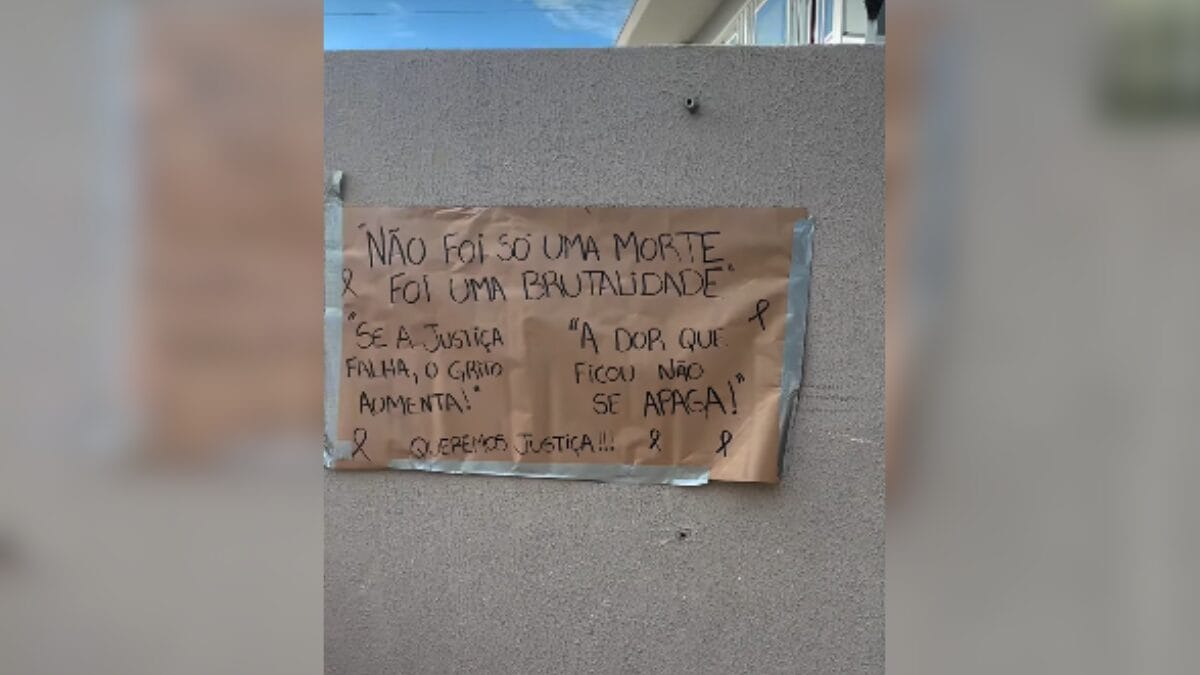 "NÃO FOI SÓ UMA MORTE
FOI UMA BRUTALIDADE"
"SE A JUSTIÇA
FALHA, O GRITO
AUMENTA!"
"A DOR QUE
FICOU NÃO
SE APAGA!"
QUEREMOS JUSTIÇA!!!